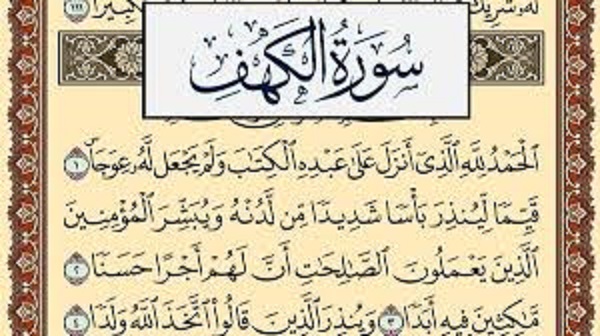 لَّهُۥ شَرِيكٌ ... كْبِيرًا ١١١
سُورَةُ الكَهْفِ
ٱلْحَمْدُ لِلَّهِ ٱلَّذِىٓ أَنزَلَ عَلَىٰ عَبْدِهِ ٱلْكِتَٰبَ وَلَمْ يَجْعَل لَّهُۥ عِوَجَا ۜ ١
قَيِّمًا لِّيُنذِرَ بَأْسًا شَدِيدًا مِّن لَّدُنْهُ وَيُبَشِّرَ ٱلْمُؤْمِنِينَ
ٱلَّذِينَ يَعْمَلُونَ ٱلصَّٰلِحَٰتِ أَنَّ لَهُمْ أَجْرًا حَسَنًا ٢
مَّٰكِثِينَ فِيهِ أَبَدًا ٣ وَيُنذِرَ ٱلَّذِينَ قَالُوا۟ ٱتَّخَذَ ٱللَّهُ وَلَدًا ٤